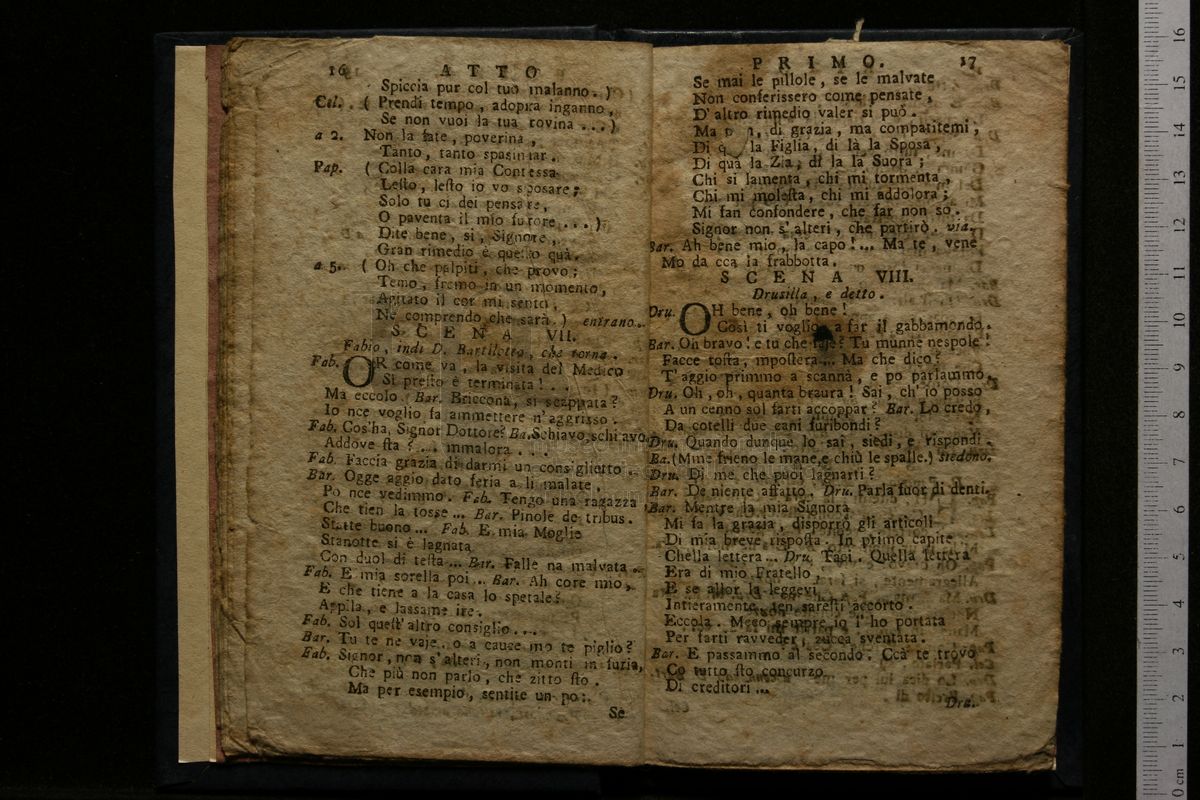 16 ATTO
Spiccia pur col tuo malanno. )
Cel. ( Prendi tempo, adopra inganno,
Se non vuoi la tua rovina ... )
a 2. Non la fate, poverina,
Tanto, tanto spasimar.
Pap. ( Colla cara mia Contessa
Leſto, leſto io vo sposare;
Solo tu ci dei pensare,
O paventa il mio furore .... )
Dite bene, si, Signore,
Gran rimedio è queſto quà.
a 5. ( Oh che palpiti, che provo;
Temo, fremo in un momento,
Agitato il cor mi sento,
Nè comprendo che sarà. ) entrano.
SCENA VII.
Fabio, indi D. Bartiletto, che torna.
Fab. OR come va, la visita del Medico
Sì preſto è terminata! . .
Ma eccolo. Bar. Briccona, si scappata?
Io nce voglio fa ammettere n'aggrisso.
Fab. Cos'ha, Signor Dottore? Ba. Schiavo, schiavo
Addove ſta? ... mmalora ...
Fab. Faccia grazia di darmi un consiglietto.
Bar. Ogge aggio dato feria a li malate,
Po nce vedimmo. Fab. Tengo una ragazza
Che tien la tosse ... Bar. Pinole de tribus.
Statte buono ... Fab. E mia Moglie
Stanotte si è lagnata
Con duol di teſta ... Bar. Falle na malvata.
Fab. E mia sorella poi ... Bar. Ah core mio,
E che tiene a la casa lo spetale?
Appila, e lassame ire.
Fab. Sol queſt'altro consiglio ...
Bar. Tu te ne vaje, o a cauce mo te piglio?
Fab. Signor, non s'alteri, non monti in furia,
Che più non parlo, che zitto ſto.
Ma per esempio, sentite un po:
Se
PRIMO. 17
Se mai le pillole, se le malvate
Non conferissero come pensate,
D'altro rimedio valer si può.
Ma di grazia, ma compatitemi,
Di la Figlia, di là la Sposa,
Di quà la Zia, di la la Suora;
Chi si lamenta, chi mi tormenta,
Chi mi moleſta, chi mi addolora;
Mi fan confondere, che far non so.
Signor non s'alteri, che partirò. via.
Bar. Ah bene mio, la capo! ... Ma te, vene
Mo da cca la frabbotta.
SCENA VIII.
Drusilla, e detto.
Dru. OH bene, oh bene!
Così ti voglio a far il gabbamondo.
Bar. Oh bravo! e tu che faje? Tu munne nespole!
Facce toſta, mpoſtera ... Ma che dico?
T'aggio primmo a scannà, e po parlammo.
Dru. Oh, oh, quanta braura! Sai, ch'io posso
A un cenno sol farti accoppar? Bar. Lo credo,
Da cotelli due cani furibondi?
Dru. Quando dunque lo sai, siedi, e rispondi.
Ba. (Mme frieno le mane, e chiù le spalle.) siedono.
Dru. Di me che puoi lagnarti?
Bar. De niente affatto. Dru. Parla fuor di denti.
Bar. Mentre la mia Signora
Mi fa la grazia, disporrò gli articoli
Di mia breve risposta. In primo capite
Chella lettera ... Dru. Taci. Quella lettera
Era di mio Fratello
E se allor la leggevi
Intieramente, ten saresti accorto.
Eccola. Meco sempre io l'ho portata
Per farti ravveder, zucca sventata.
Bar. E passammo al secondo. Ccà te trovo
Co tutto ſto concurzo
Di creditori ...
Dru.